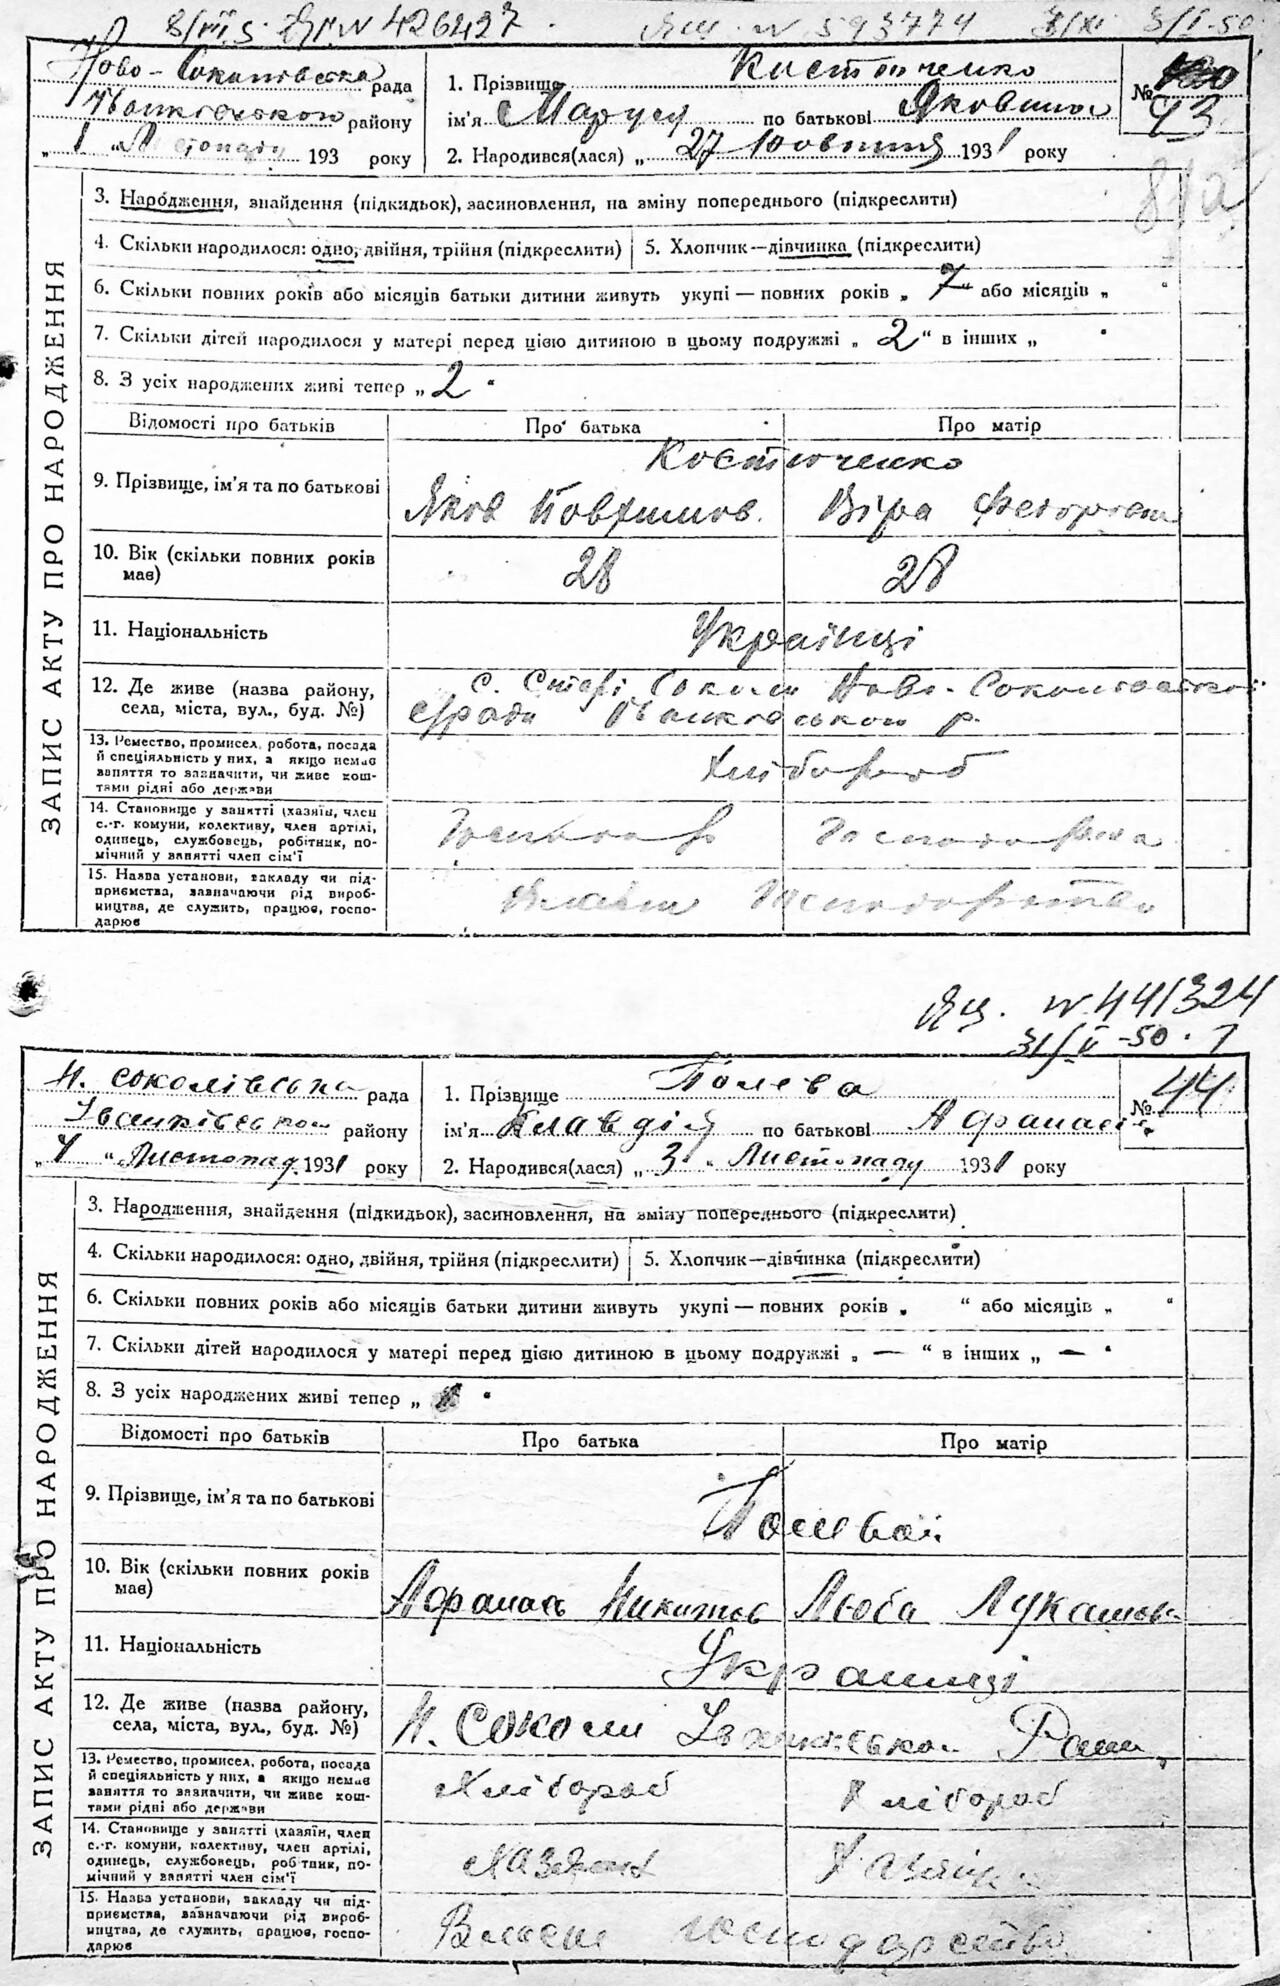 8/VII.S. № 426427.
Ящ. № 593774
3/I-50.
Ново-Соколовська рада
Іванківськой району
„ 1 “ Листопаду 193 року
1. Прізвище Костюченко
ім'я Маруся по батькові Яковлівна
2. Народився(лася) „ 27 Жовтня 1931 року
№ 43
81а
ЗАПИС АКТУ ПРО НАРОДЖЕННЯ
3. Народження, знайдення (підкидьок), засиновлення, на зміну попереднього (підкреслити)
4. Скільки народилося: одно, двійня, трійня (підкреслити) 5. Хлопчик—дівчинка (підкреслити)
6. Скільки повних років або місяців батьки дитини живуть укупі — повних років „ 7 “ або місяців „ “
7. Скільки дітей народилося у матері перед цією дитиною в цьому подружжі „ 2 “ в інших „ “
8. З усіх народжених живі тепер „ 2 “
Відомості про батьків Про батька Про матір
Костюченко
9. Прізвище, ім'я та по батькові Яков Віра Федоровна
10. Вік (скільки повних років має) 28 28
11. Національність Українці
12. Де живе (назва району, села, міста, вул., буд. №) с. Старі Соколи Ново-Соколовської
с/ради Іванківськой р.
13. Ремество, промисел, робота, посада й спеціяльність у них, а якщо немає заняття то зазначити, чи живе коштами рідні або держави Хлібороб
14. Становище у занятті (хазяїн, член с.-г. комуни, колективу, член артілі, одинець, службовець, робітник, помічний у занятті член сім'ї Господар Господарка
15. Назва установи, закладу чи підприємства, зазначаючи рід виробництва, де служить, працює, господарює Власне Господарство
Ящ. № 441324
31/II-50.
Н. Соколівська рада
Іванківськой району
„ 4 “ Листопад 1931 року
1. Прізвище Полева
ім'я Клавдія по батькові Афанасіє.
2. Народився(лася) „ 3 “ Листопаду 1931 року
№ 44
ЗАПИС АКТУ ПРО НАРОДЖЕННЯ
3. Народження, знайдення (підкидьок), засиновлення, на зміну попереднього (підкреслити)
4. Скільки народилося: одно, двійня, трійня (підкреслити) 5. Хлопчик—дівчинка (підкреслити)
6. Скільки повних років або місяців батьки дитини живуть укупі — повних років „ “ або місяців „ “
7. Скільки дітей народилося у матері перед цією дитиною в цьому подружжі „ — “ в інших „ — “
8. З усіх народжених живі тепер „ “
Відомості про батьків Про батька Про матір
9. Прізвище, ім'я та по батькові Полевой
10. Вік (скільки повних років має) Афанась Никитов Люба Лукашовна
11. Національність Украинці
12. Де живе (назва району, села, міста, вул., буд. №) Н. Соколи Іванківськой Раши
13. Ремество, промисел, робота, посада й спеціяльність у них, а якщо немає заняття то зазначити, чи живе коштами рідні або держави Хлібороб Хлібороб
14. Становище у занятті (хазяїн, член с.-г. комуни, колективу, член артілі, одинець, службовець, робітник, помічний у занятті член сім'ї
15. Назва установи, закладу чи підприємства, зазначаючи рід виробництва, де служить, працює, господарює Власне господарство